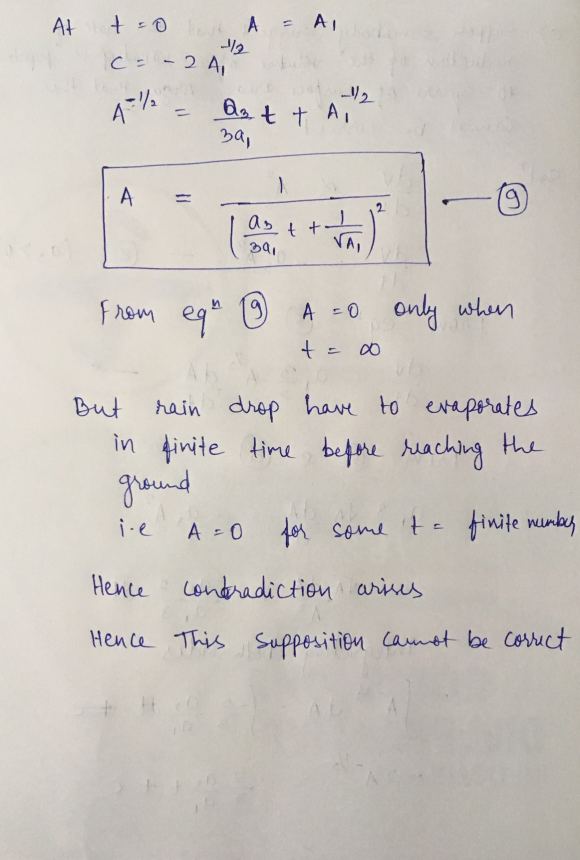 At t = 0 A = A₁
C = - 2 A₁^-1/2
A^-1/2 = a₃/3a₁ t + A₁^-1/2
A = 1/(a₃/3a₁ t + 1/√A₁)² — ⑨
From eqⁿ ⑨ A = 0 only when
t = ∞
But rain drop have to evaporates
in finite time before reaching the
ground
i.e A = 0 for some t = finite number
Hence contradiction arises
Hence This supposition cannot be correct